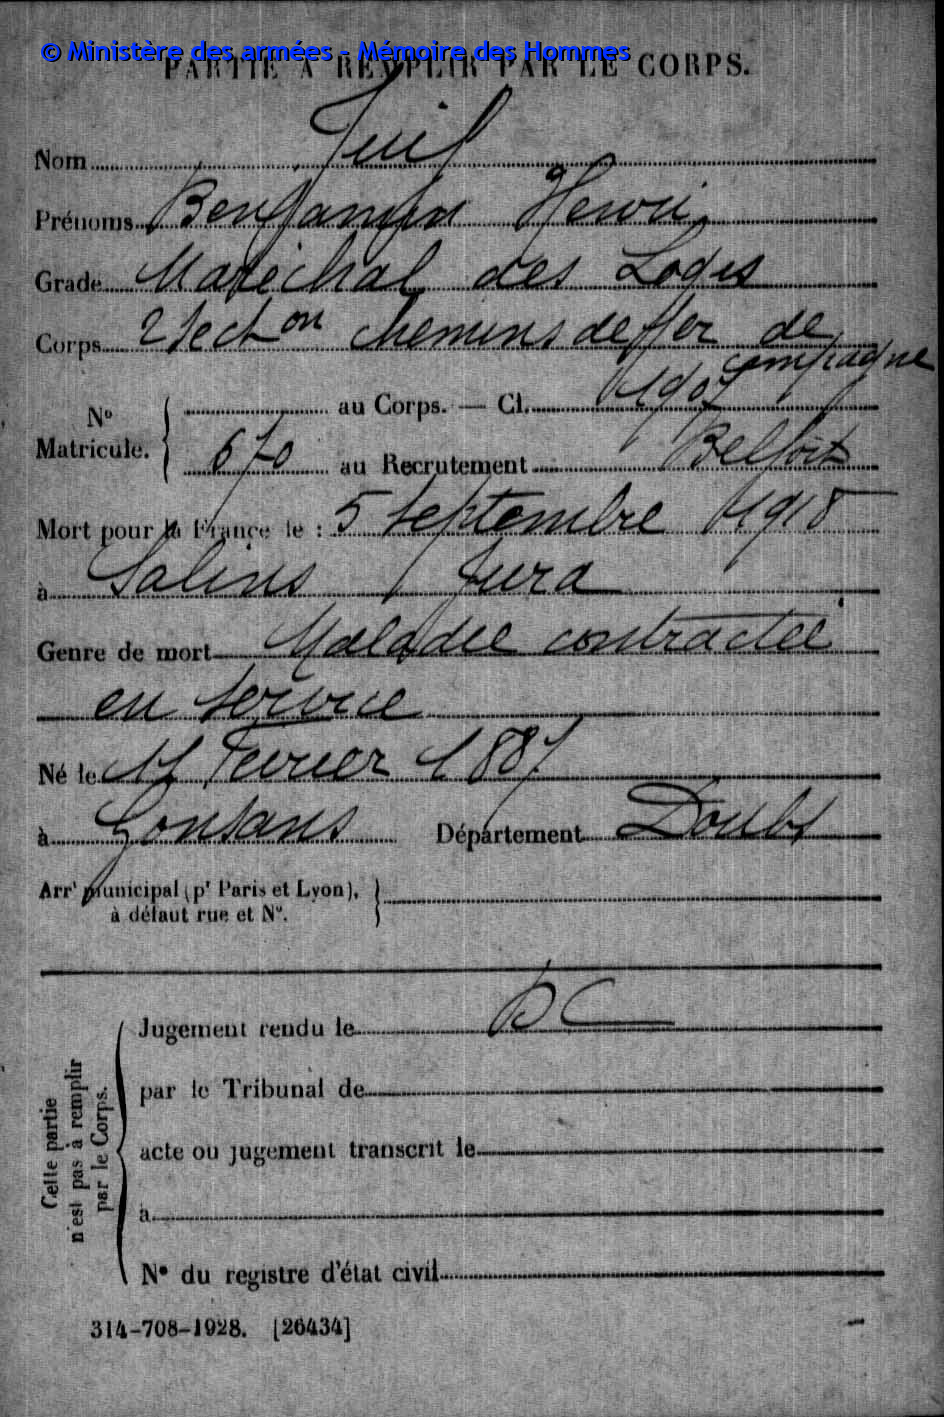 © Ministère des armées - Mémoire des Hommes
PARTIE A REMPLIR PAR LE CORPS.
Nom Juif
Prénoms Benjamin Henri
Grade Maréchal des Logis
Corps 2 Section chemins de fer de
campagne
N° Matricule. au Corps. — Cl. 1907
670 au Recrutement Belfort
Mort pour la France le : 5 Septembre 1918
à Salins Jura
Genre de mort Maladie contractée
en service
Né le 11 Février 1887
à Gonsans Département Doubs
Arrt municipal (pr Paris et Lyon),
à défaut rue et N°.
Cette partie
n'est pas à remplir
par le Corps.
Jugement rendu le DC
par le Tribunal de
acte ou jugement transcrit le
à
N° du registre d'état civil
314-708-1928. [26434]